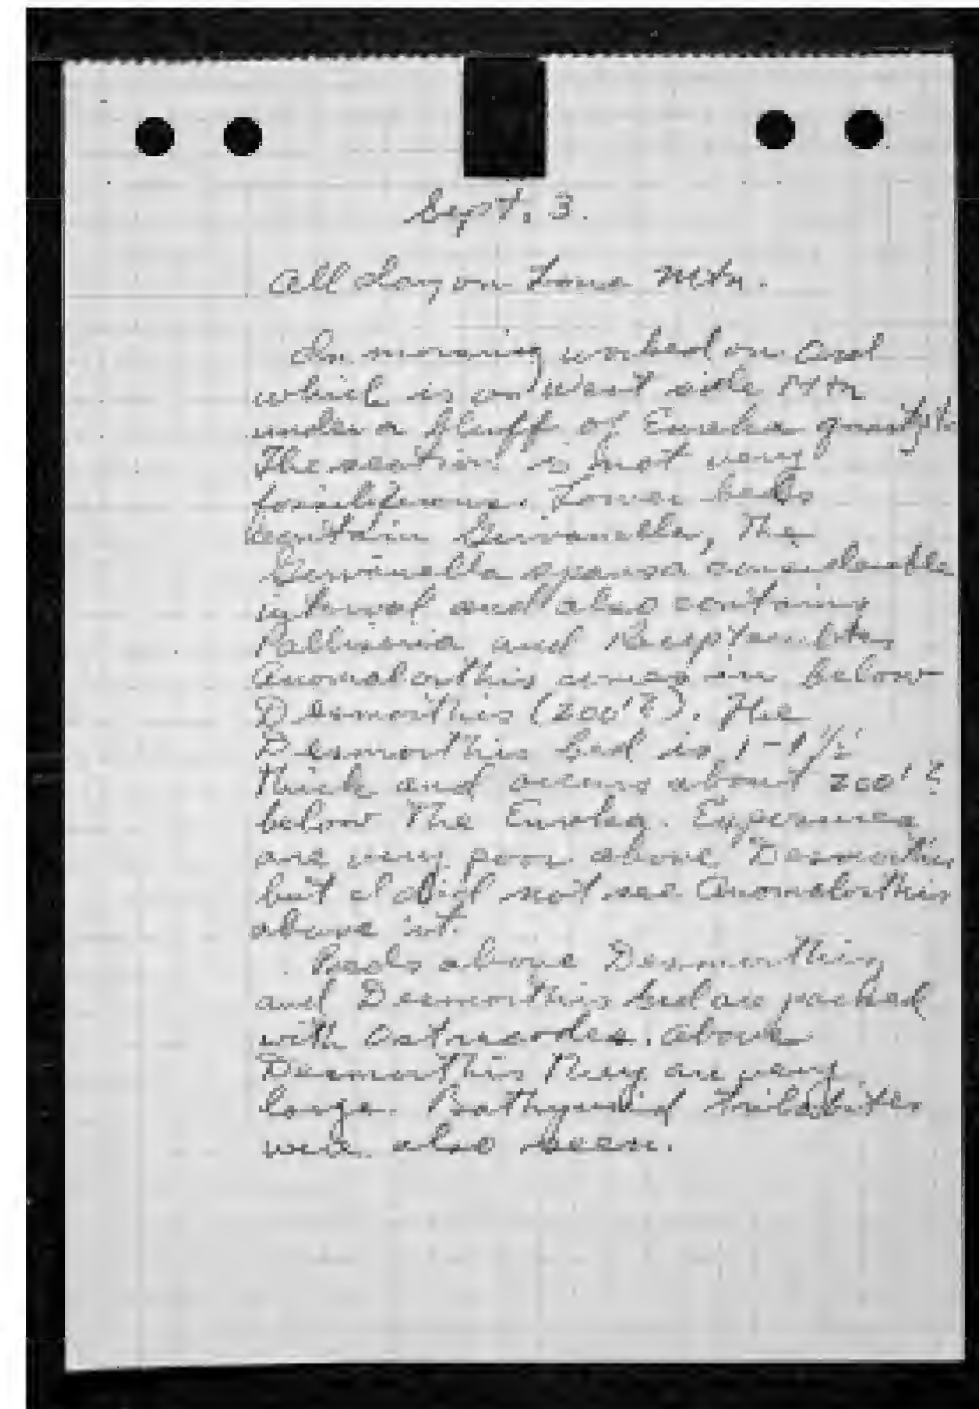 Sept. 3.
All day on Lone Mtn.
In morning worked on Ord
which is on West side Mtn
under a bluff of Eureka quartzite
The section is not very
fossiliferous. Lower beds
contain Girvanella, The
Girvanella spans a considerable
interval and also contains
Palliseria and Receptaculites
Anomalorthis comes in below
Desmorthis (200'?). The
Desmorthis bed is 1-1 1/2'
thick and occurs about 200'?
below The Eureka. Exposures
are very poor above Desmorthis
but I did not see Anomalorthis
above it.
Beds above Desmorthis
and Desmorthis bed are packed
with Ostracodes. Above
Desmorthis They are very
large. Bathyurid trilobites
were also seen.